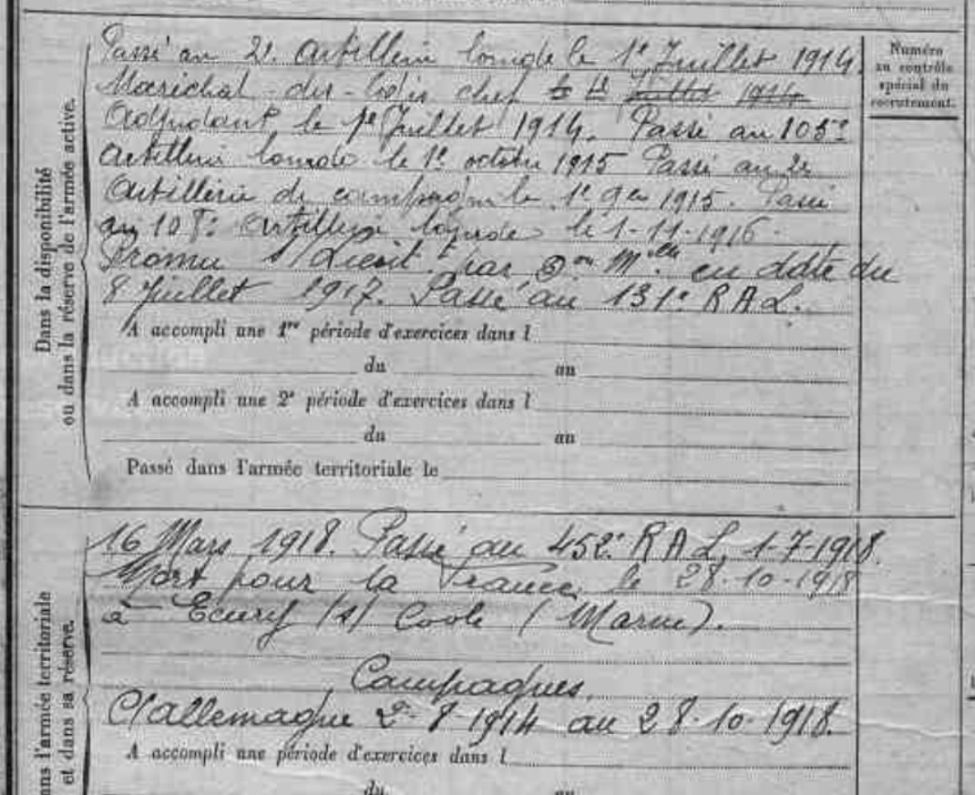 Numéro
au contrôle
spécial du
recrutement.
Dans la disponibilité
ou dans la réserve de l'armée active.
Passé au 2e artillerie lourde le 1e Juillet 1914.
Maréchal-des-logis chef le 1e Juillet 1914
Adjudant le 1e Juillet 1914. Passé au 105e
artillerie lourde le 1e octobre 1915 Passé au 2e
artillerie de campagne le 1e 9bre 1915. Passé
au 108e artillerie lourde le 1-11-1916.
Promu s/Lieut. par Don Mlle en date du
8 Juillet 1917. Passé au 131e R.A.L.
A accompli une 1re période d'exercices dans l
du au
A accompli une 2e période d'exercices dans l
du au
Passé dans l'armée territoriale le
ans l'armée territoriale
et dans sa réserve.
16 Mars 1918. Passé au 452e R A L, 1-7-1918.
Mort pour la France, le 28-10-1918
à Ecury (s) Coole (Marne).
Campagnes.
C/allemagne 2-8-1914 au 28-10-1918.
A accompli une période d'exercices dans l
du au